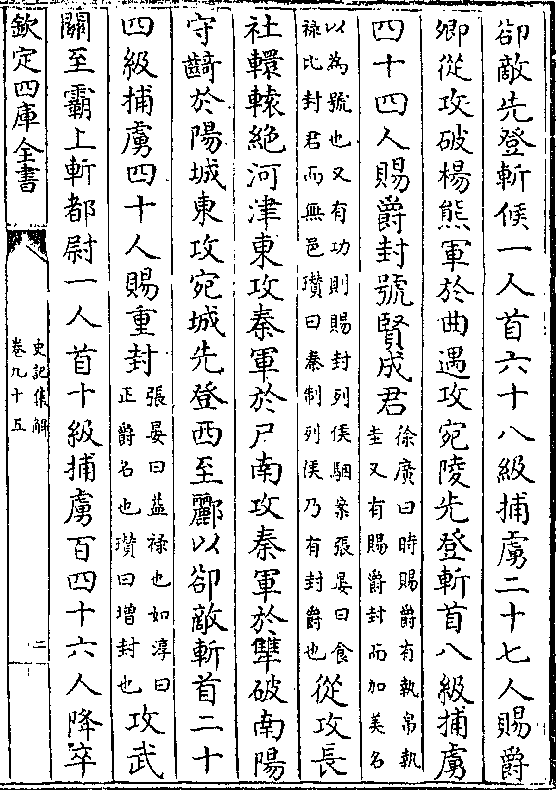 卻敵先登斬候一人首六十八級捕虜二十七人賜爵
卿從攻破楊熊軍於曲遇攻宛陵先登斬首八級捕虜
四十四人賜爵封號賢成君徐廣曰時賜爵有執帛執
圭又有賜爵封而加美名
以為號也又有功則賜封列侯駰案張晏曰食
祿比封君而無邑瓚曰秦制列侯乃有封爵也從攻長
社轘轅絶河津東攻秦軍於尸南攻秦軍於犨破南陽
守齮於陽城東攻宛城先登西至酈以卻敵斬首二十
四級捕虜四十人賜重封張晏曰益祿也如淳曰
正爵名也瓚曰增封也攻武
關至霸上斬都尉一人首十級捕虜百四十六人降卒
欽定四庫全書
史記集解
卷九十五
二